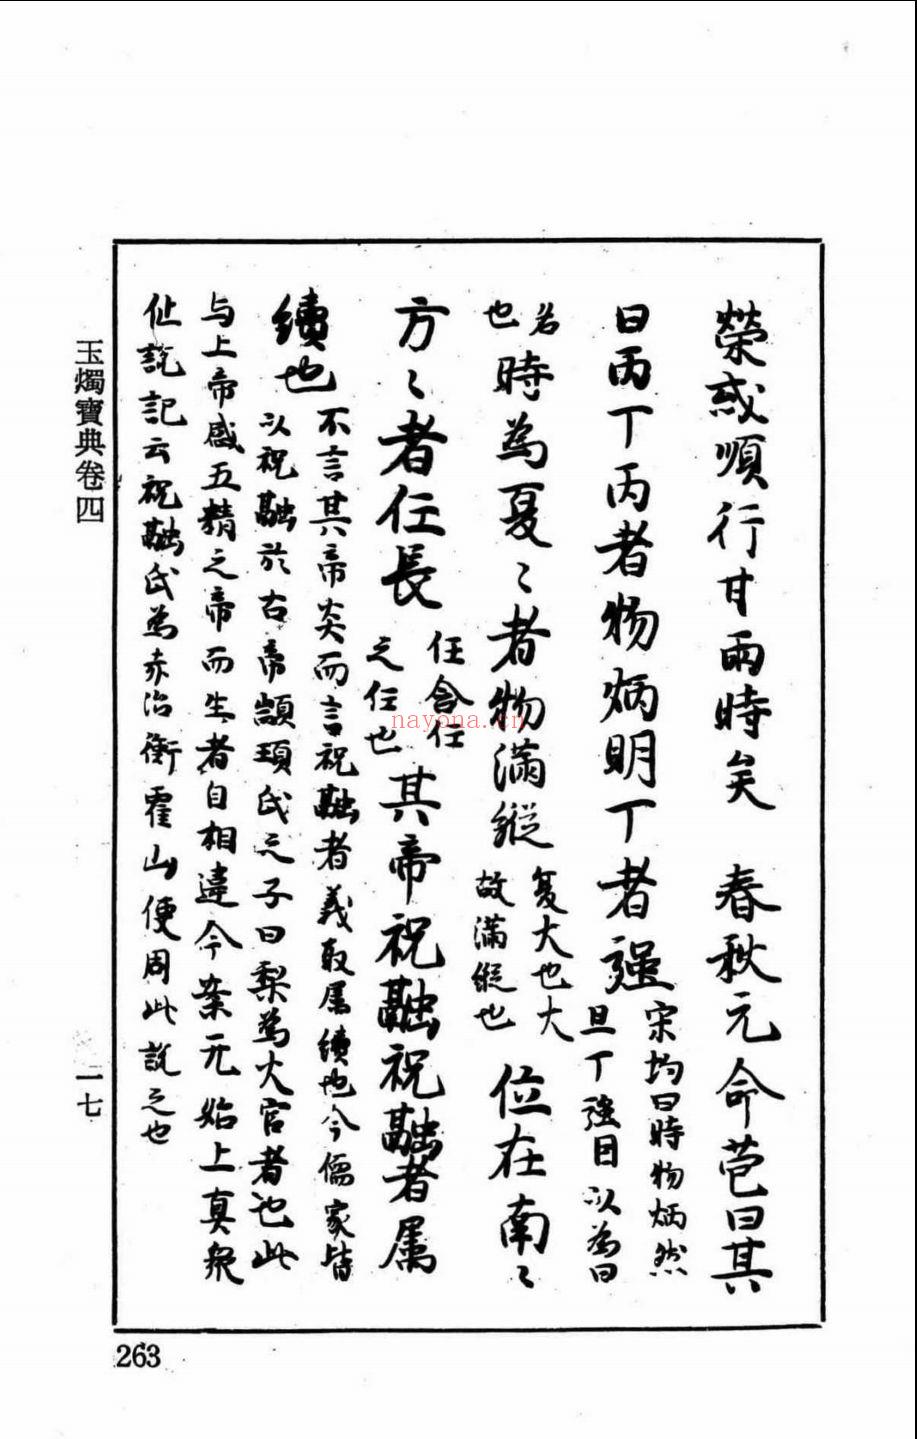 榮惑順行甘雨時矣 春秋元命苞曰其
日丙丁丙者物炳明丁者強
宋均曰時物炳然
且丁強因以為曰
名
也
時為夏〻者物滿縱
复大也大
故滿縱也
位在南〻
方〻者任長
任含任
之任也
其帝祝融祝融者属
續也
不言其帝炎而言祝融者義取属續也今儒家皆
以祝融於古帝顓頊氏之子曰梨為火官者也此
与上帝感五精之帝而生者自相違今案无始上真衆
仙說記云祝融氏為赤治衡霍山便周此說之也
玉燭寶典卷四
一七
263
nayona.cn